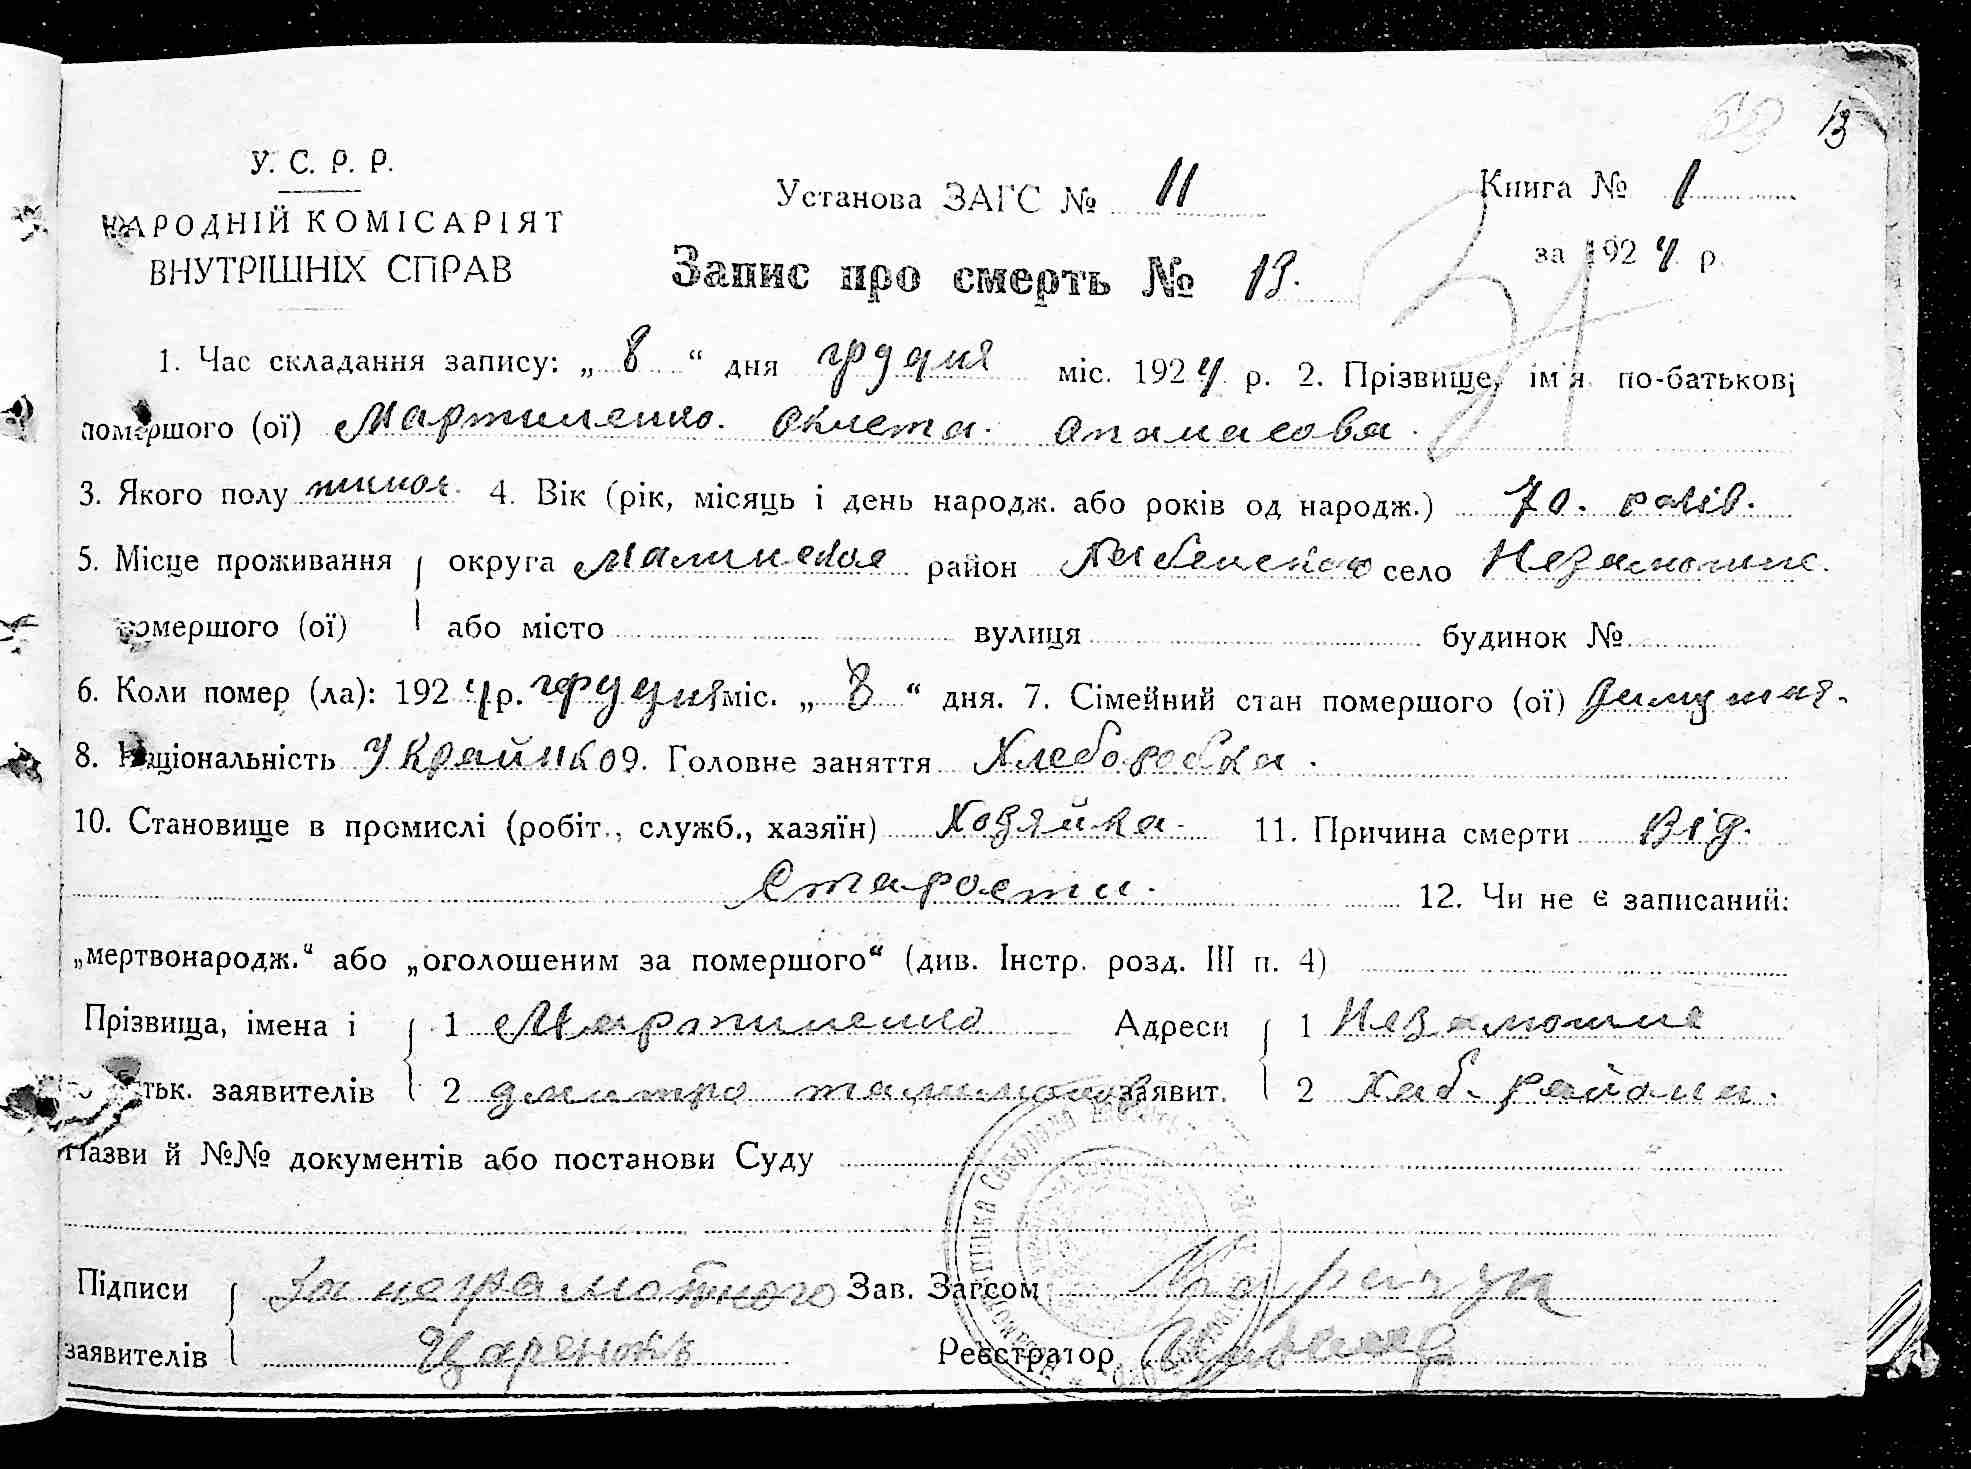 13
У. С. Р. Р.
НАРОДНІЙ КОМІСАРІЯТ
ВНУТРІШНІХ СПРАВ
Установа ЗАГС № 11
Книга № 1
за 1924 р.
Запис про смерть № 13.
1. Час складання запису: „ 8 “ дня грудня міс. 1924 р. 2. Прізвище, ім'я по-батькові
помершого (ої) Мартиненко. Апанасова.
3. Якого полу 4. Вік (рік, місяць і день народж. або років од народж.) 70. років.
5. Місце проживання округа Малинская район село Незаможне.
помершого (ої) або місто вулиця будинок №
6. Коли помер (ла): 1924 р. грудня міс. „ 8 “ дня. 7. Сімейний стан помершого (ої)
8. Національність Українка 9. Головне заняття Хлеборобка.
10. Становище в промислі (робіт., служб., хазяїн) Хозяйка. 11. Причина смерти Від.
Старости. 12. Чи не є записаний:
„мертвонародж.“ або „оголошеним за помершого“ (див. Інстр. розд. III п. 4)
Прізвища, імена і 1 Мартиненко Адреси 1 Незаможне
тьк. заявителів 2 дмитро заявит. 2 Хаб. района.
Назви й №№ документів або постанови Суду
Підписи За неграмотного Зав. Загсом
заявителів Царенокъ Реєстратор